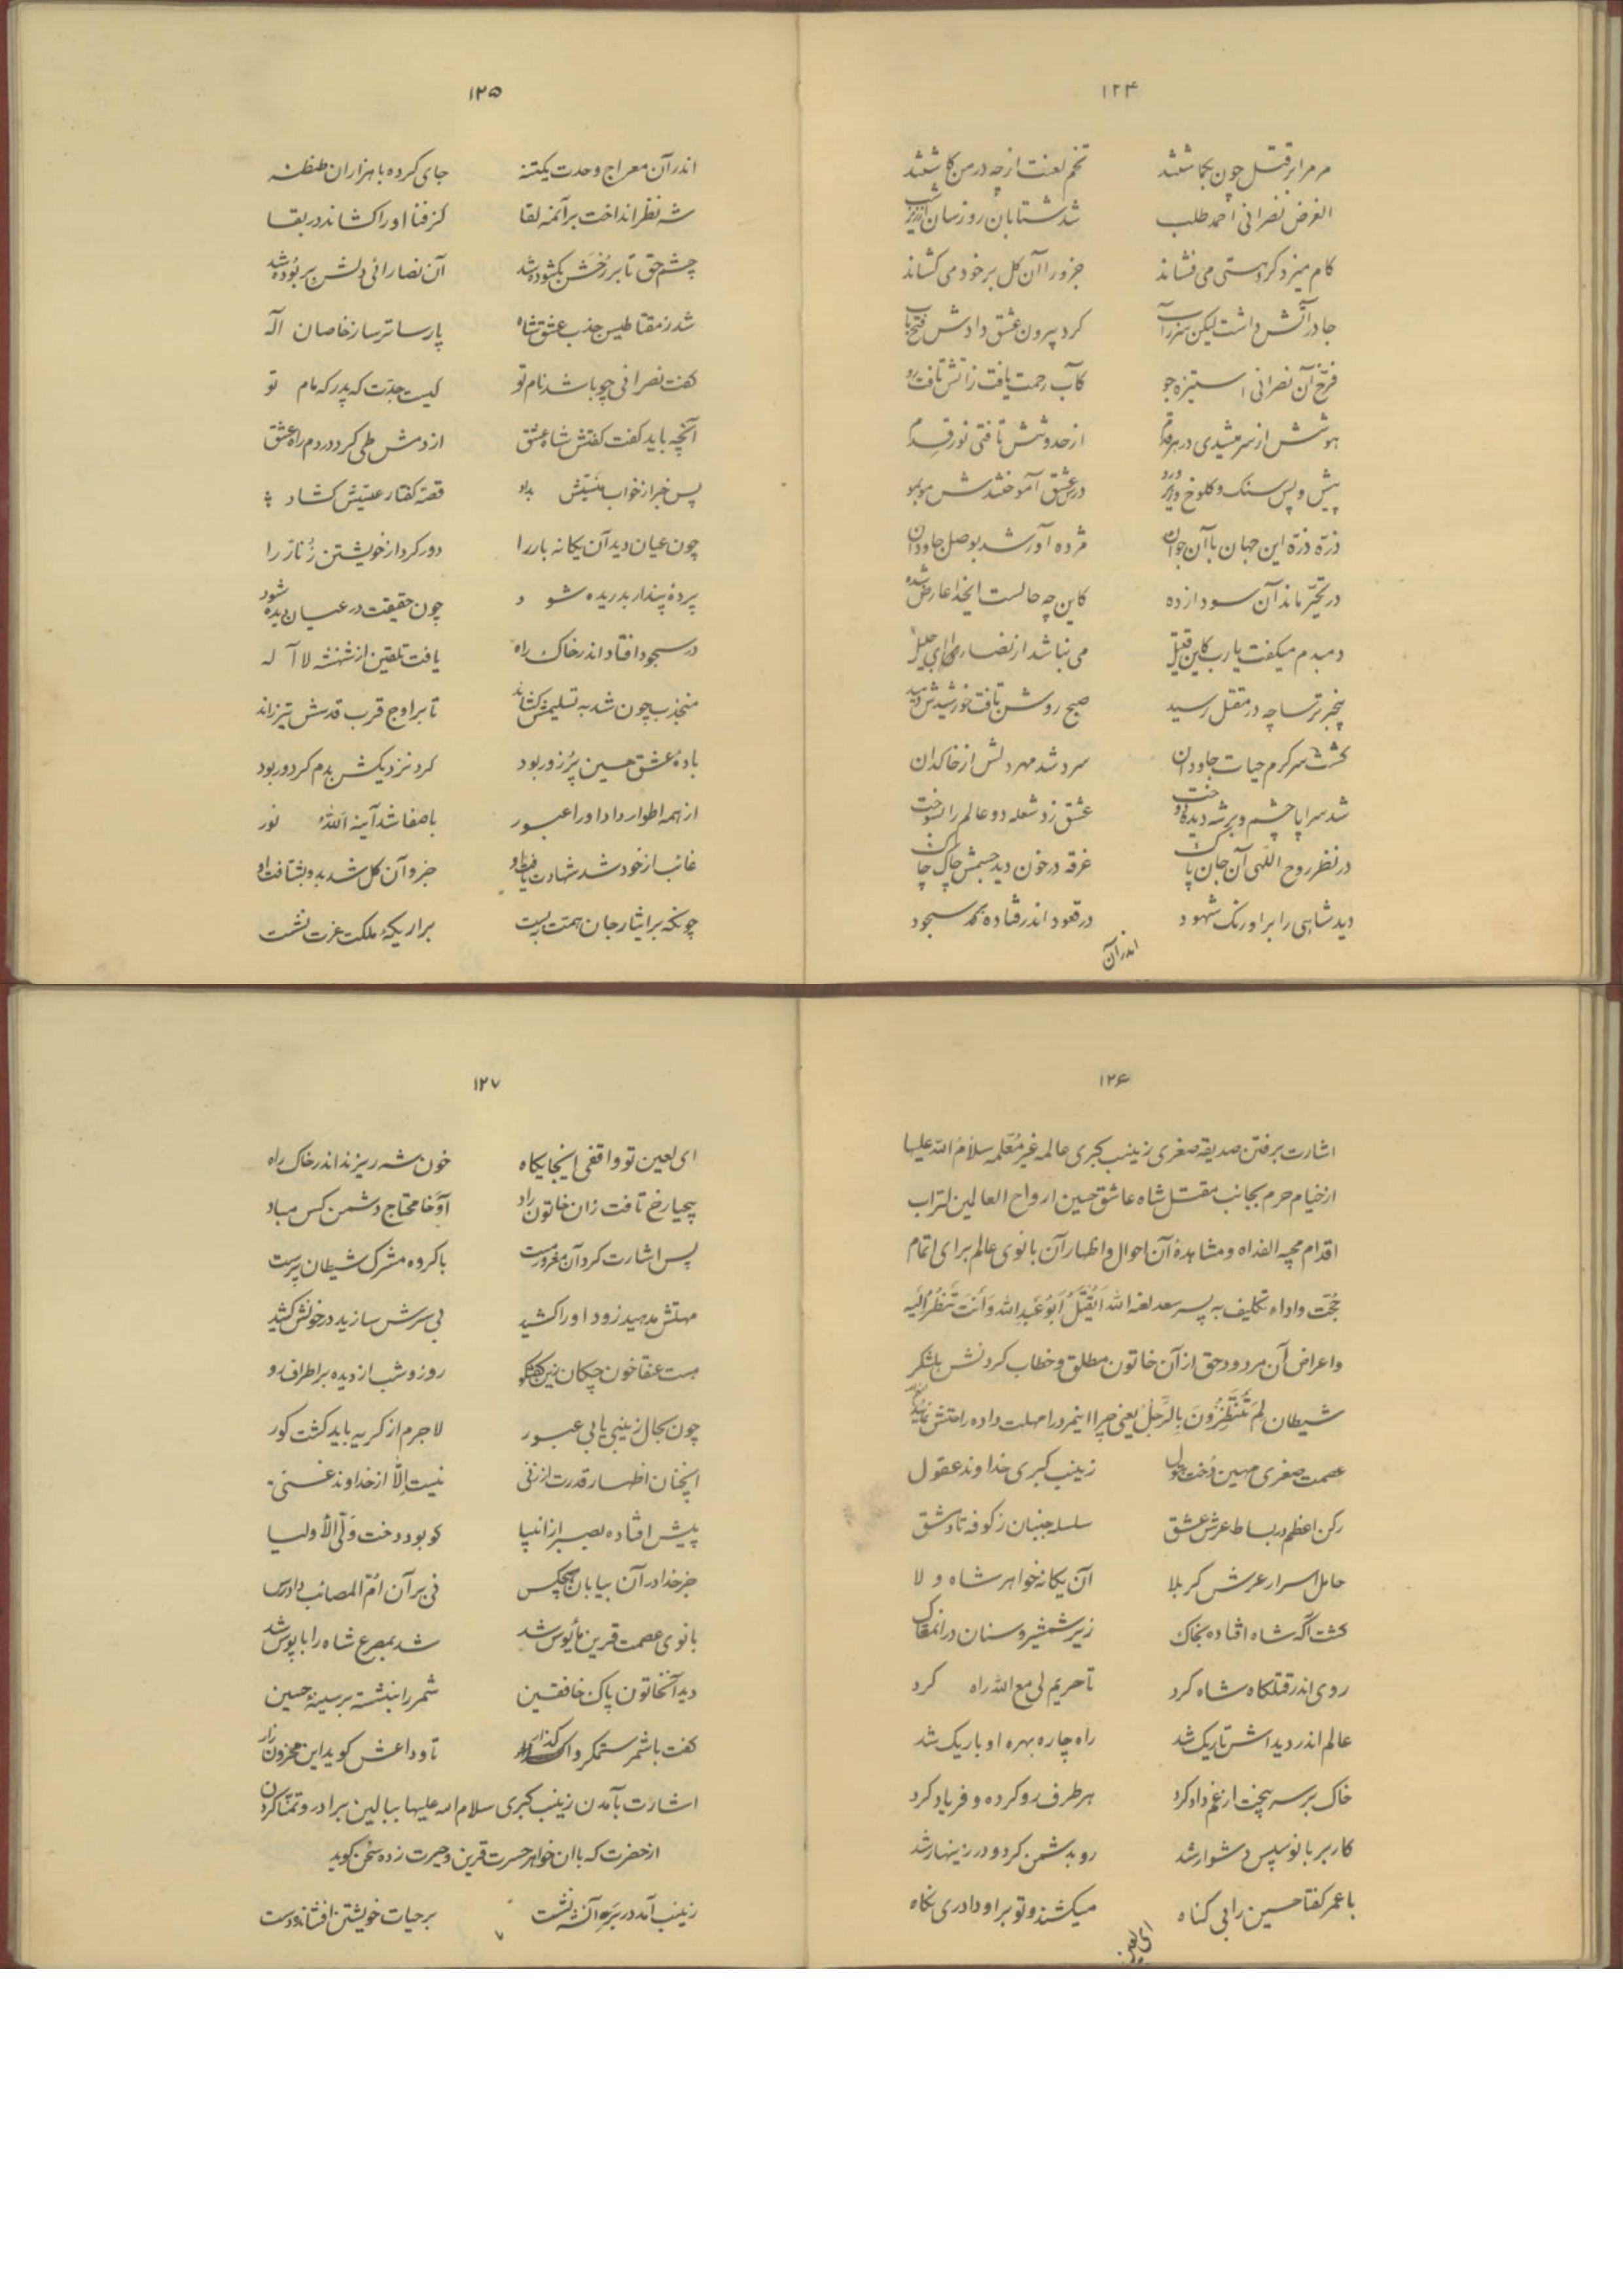 ۱۲۴
مر مرا بر قتل چون بگماشتند تخم لعنت از چه در من کاشتند
الغرض نصرانی احمد طلب شد شتابان روزسان
کام میزد کرد هستی می فشاند جزو را آن کل بر خود می کشاند
جا در آتش داشت لیکن کرد بیرون عشق دادش فتح باب
فرّخ آن نصرانی استیزه جو کآب رحمت یافت زآتش تافت رو
هوشش از سر میشدی در هر قدم از حدوثش تافتی نور قدم
پیش و پس سنک و کلوخ درس عشق آموختندش موبمو
ذرّه ذرّه این جهان با آن جوان مژده آور شد بوصل جاودان
در تحیّر ماند آن سودا زده کاین چه حالست ایخدا عارض شده
دمبدم میکفت یارب کاین قتیل می نباشد از نصارای جلیل
پنجر ترسا چه در مقتل رسید صبح روشن تافت خورشیدش دمید
کشت سرکرم حیات جاودان سرد شد مهر دلش از خاکدان
شد سراپا چشم و بر شه دیده دوخت عشق زد شعله دو عالم را بسوخت
در نظر روح اللهی آن جان پاک غرقه در خون دید جسمش چاک چاک
دید شاهی را بر اورنک شهود در قعود اندر فتاده بکه سجود
اندر آن
۱۲۵
اندر آن معراج وحدت یکتنه جای کرده با هزاران طنطنه
شه نظر انداخت بر آئنه لقا کز فنا او را کشاند در بقا
چشم حق تا بر رُخش بکشوده شد آن نصارائی دلش بربُوده شد
شد ز مقناطیس جذب عشق شاه پارسا ترسا ز خاصان اله
کفت نصرانی چو باشد نام تو کیست جدّت که پدر که مام تو
آنچه باید کفت کفتش شاه عشق از دمش طی کرد در دم راه عشق
پس خبر از خواب دوشینش بداد قصّه کفتار عیسیش کشاد
چون عیان دید آن یکانه یار را دور کرد از خویشتن زُنّار را
پردهٔ پندار بدریده شود چون حقیقت در عیان دیده شود
در سجود افتاد اندر خاک راه یافت تلقین از شهنشه لا آله
منجذب چون شد به تسلیمش کشاند تا بر اوج قرب قدسش تیز راند
بادهٔ عشق حسین پُر زور بود کرد نزدیکش بدم کر دور بود
از همه اطوار داد او را عبور با صفا شد آینه اللهُ نور
غائب از خود شد شهادت یافت او جزو آن کل شد بدو بشتافت او
چونکه بر ایثار جان همّت ببست بر اریکهٔ ملکت عزت نشست
۱۲۶
اشارت برفتن صدیقه صغری زینب کبری عالمه غیر مُعلّمه سلام الله علیها
از خیام حرم بجانب مقتل شاه عاشق حسین ارواح العالمین لتراب
اقدام محبیه الفداه و مشاهدهٔ آن احوال و اظهار آن بانوی عالم برای اتمام
حجّت و اداء تکلیف به پسر سعد لعنه الله أیُقتَلُ اَبُو عَبدِ الله وَ أنتَ تَنظُرُ الَیه
و اعراض آن مردود حق از آن خاتون مطلق و خطاب کردنش بلشکر
شیطان لِمَ تَنتَظِرُونَ بِالرَّجل یعنی چرا اینمرد را مهلت داده راحتش
عصمت صغری مهین دُخت بتول زینب کبری خداوند عقول
رکن اعظم در بساط عرش عشق سلسله جنبان ز کوفه تا دمشق
حامل اسرار عرش کربلا آن یکانه خواهر شاه ولا
کشت آکه شاه افتاده بخاک زیر شمشیر و سنان در انمغاک
روی اندر قتلکاه شاه کرد تا حریم لی مع الله راه کرد
عالم اندر دید اش تاریک شد راه چاره بهره او باریک شد
خاک بر سر بیخت از غم داد کرد هر طرف رو کرده و فریاد کرد
کار بر بانو سپس دشوار شد رو بدشمن کرد و در زینهار شد
با عمر کفتا حسین را بی کناه میکشند و تو بر او داری نکاه
ای لعین
۱۲۷
ای لعین تو واقفی اینجایکاه خون شه ریزند اندر خاک راه
بیحیا رخ تافت زان خاتون راد آوخا محتاج دشمن کس مباد
پس اشارت کرد آن مغرور مست با کروه مشرک شیطان پرست
مهلتش مدهید زود او را کشید بی سرش سازید در خونش کشید
هست عنقا خون چکان زین کفتکو روز و شب از دیده بر اطراف رو
چون بحال زینبی یابی عبور لاجرم از کریه باید کشت کور
اینچنان اظهار قدرت از زنی نیست اِلّا از خداوند غنی
پیش افتاده بصبر از انبیا کو بود دخت وَلّی الأولیا
جز خدا در آن بیابان هیچکس نی بر آن امّ المصائب دادرس
بانوی عصمت قرین مأیوس شد شد بمصرع شاه را پابوس شد
دید آنخاتون پاک خافقین شمر را بنشسته بر سینهٔ حسین
کفت با شمر ستمکر واکذار تا وداعش کوید این محزون زار
اشارت بآمدن زینب کبری سلام الله علیها ببالین برادر و تمنّا کردن
از حضرت که با ان خواهر حسرت قرین و حیرت زده سخن کوید
زینب آمد در بر آن شه نشست بر حیات خویشتن افشاند دست